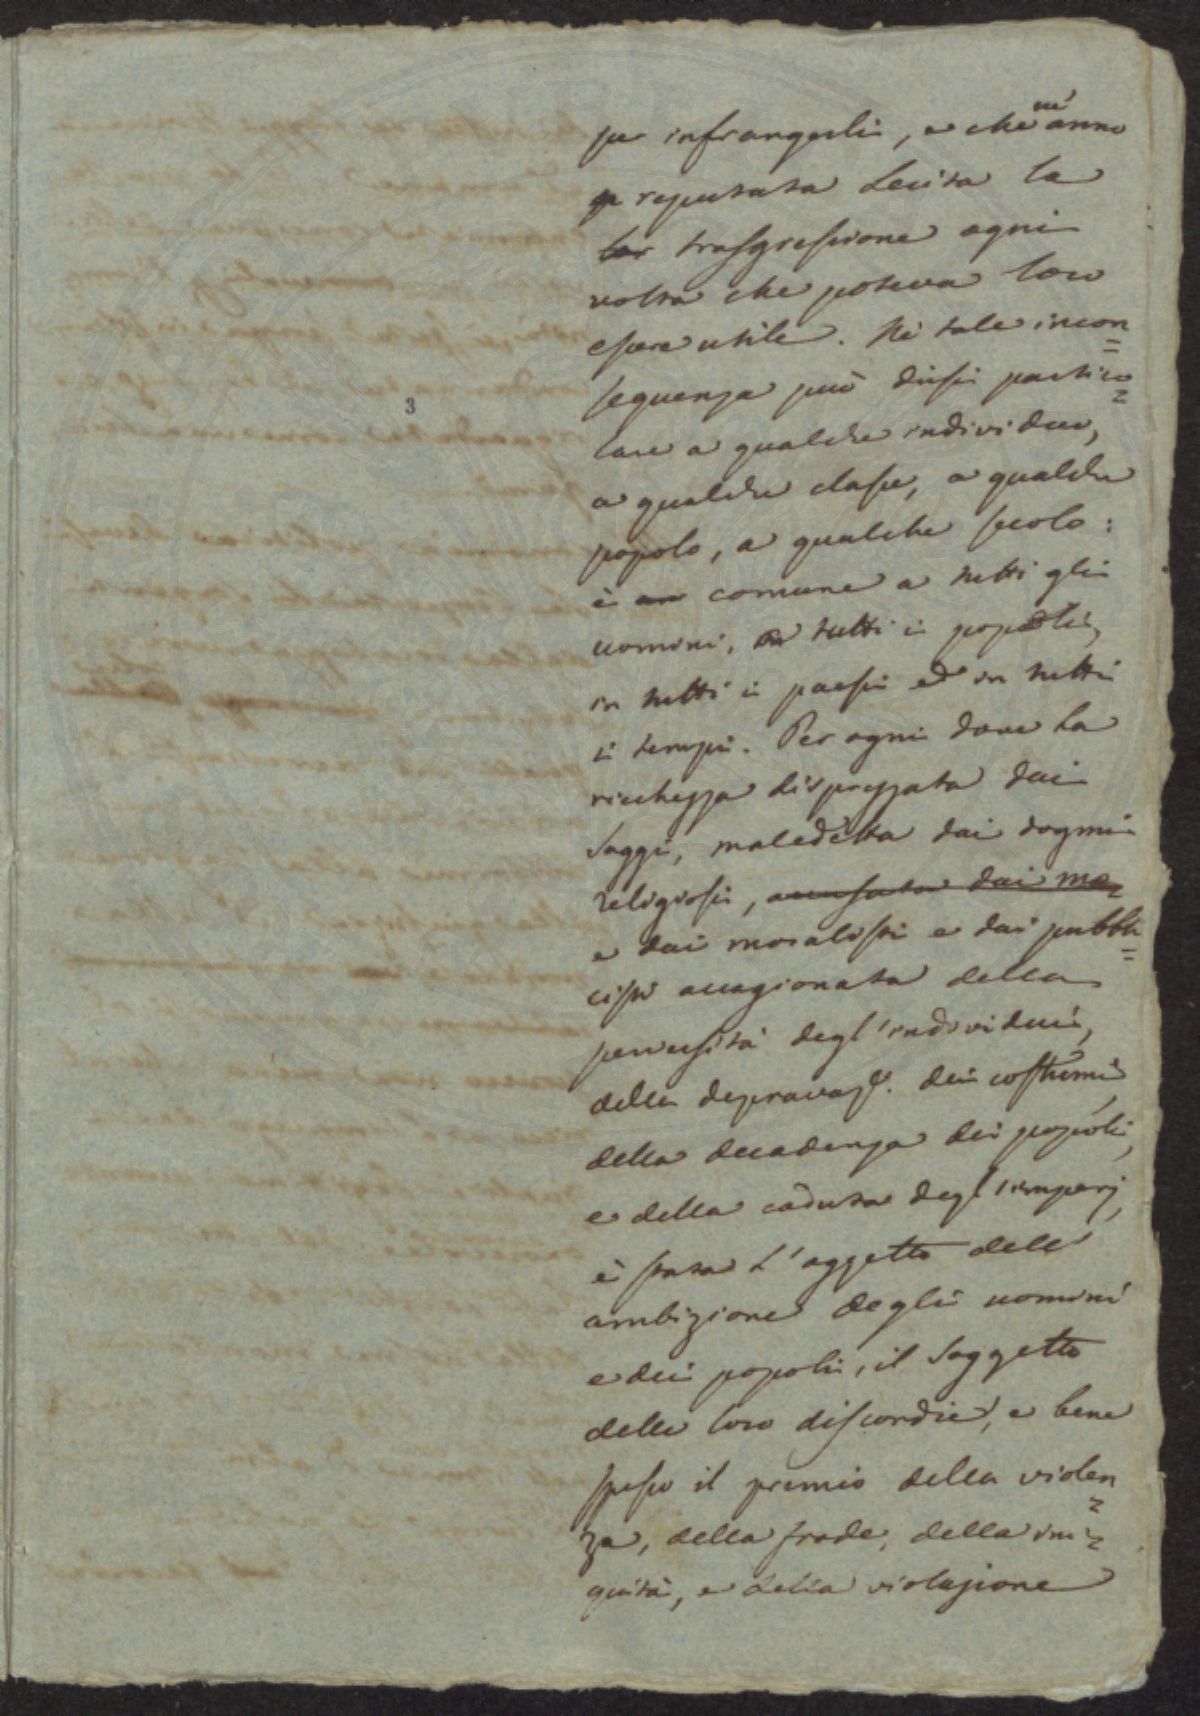 per infrangerli, e che
ne
anno
reputata lecita la
lor trasgressione ogni
volta che poteva loro
essere utile. Nè tale incon=
seguenza può dirsi partico=
3
lare a qualche individuo,
a qualche classe, a qualche
popolo, a qualche secolo:
è comune a tutti gli
uomini, tutti i popoli,
in tutti i paesi ed in tutti
i tempi. Per ogni dove la
ricchezza disprezzata dai
saggi, maledetta dai dogmi
religiosi, accusata dai mo=
e dai moralisti e dai pubbli=
cisti accagionata della
perversità degl'individui,
della depravaz.e dei costumi,
della decadenza dei popoli,
e della caduta degl'imperj,
è stata l'oggetto dell'
ambizione degli uomini
e dei popoli, il soggetto
delle loro discordie, e bene
spesso il premio della violen=
za, della frode, della ini=
quità, e della violazione